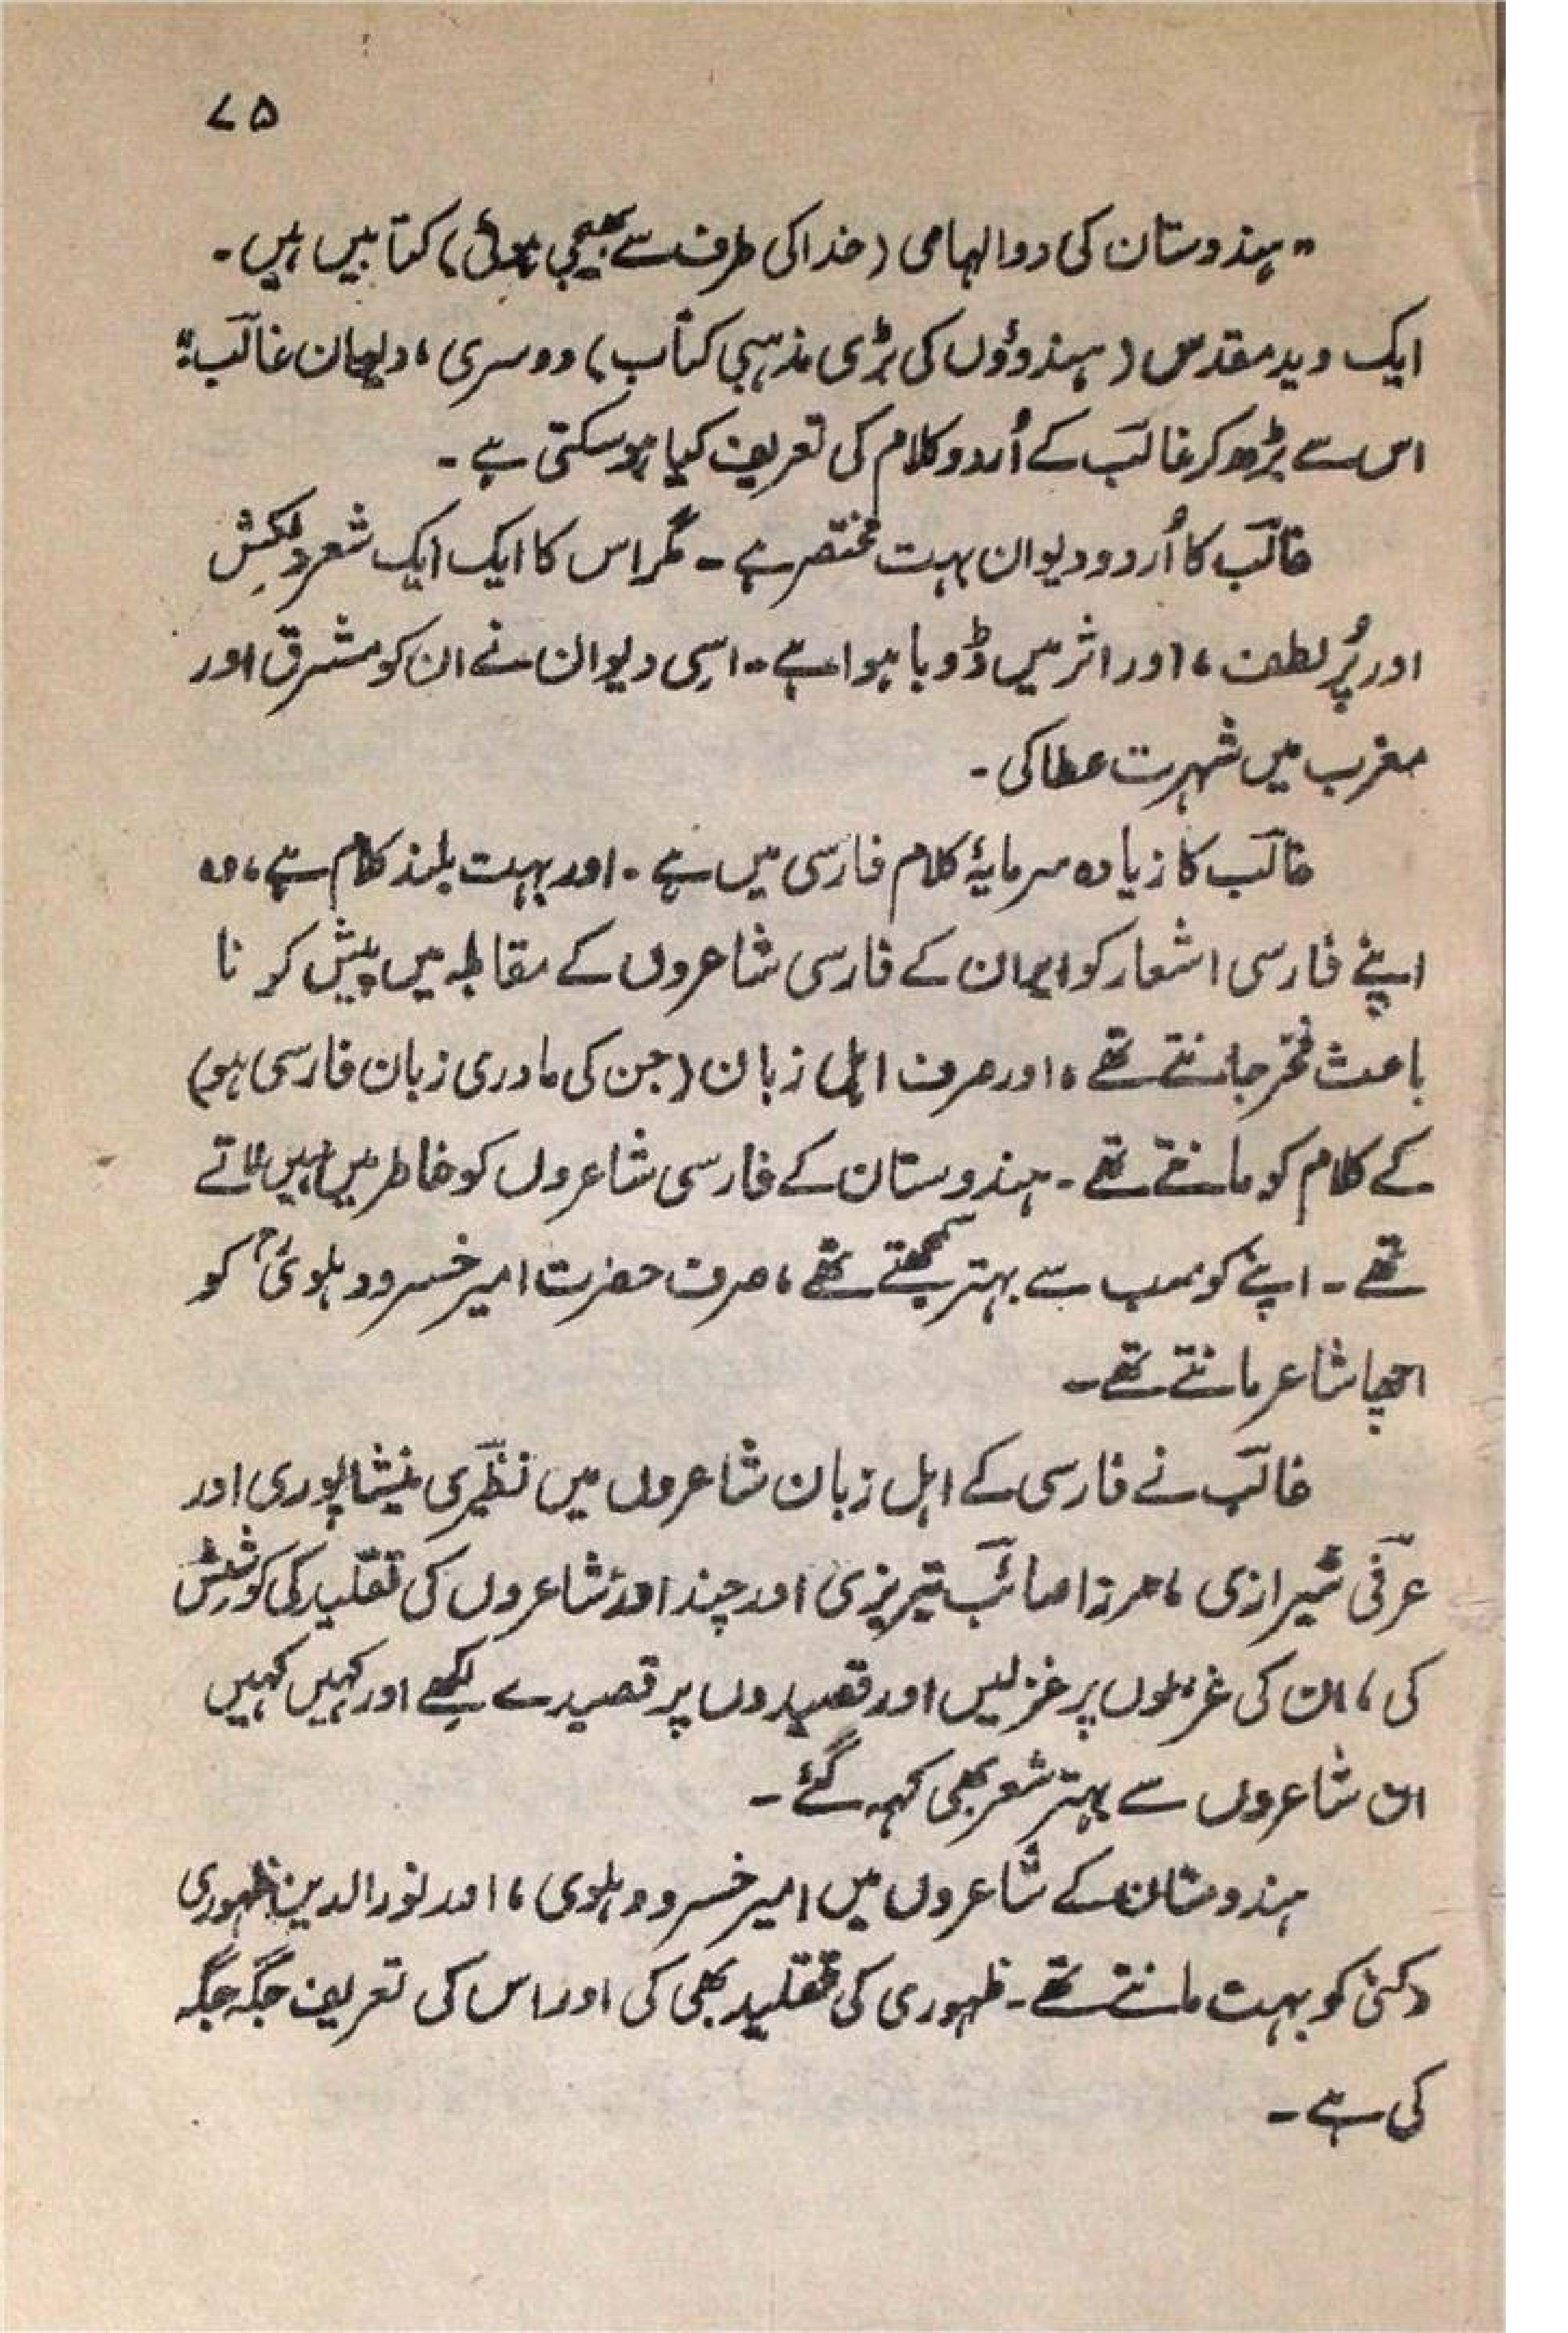 ۷۵
"ہندوستان کی دو الہامی (خدا کی طرف سے بھیجی ہوئی) کتابیں ہیں۔
ایک وید مقدس (ہندوؤں کی بڑی مذہبی کتاب) دوسری، دیوان غالبؔ"
اس سے بڑھ کر غالبؔ کے اُردو کلام کی تعریف کیا ہو سکتی ہے۔
غالبؔ کا اُردو دیوان بہت مختصر ہے۔ مگر اس کا ایک ایک شعر دلکِش
اور پُر لطف، اور اثر میں ڈوبا ہوا ہے۔ اسی دیوان نے ان کو مشرق اور
مغرب میں شہرت عطا کی۔
غالبؔ کا زیادہ سرمایۂ کلام فارسی میں ہے۔ اور بہت بلند کلام ہے، وہ
اپنے فارسی اشعار کو ایران کے فارسی شاعروں کے مقابلہ میں پیش کرنا
باعث فخر جانتے تھے، اور صرف اہل زبان (جن کی مادری زبان فارسی ہو)
کے کلام کو مانتے تھے۔ ہندوستان کے فارسی شاعروں کو خاطر میں نہیں لاتے
تھے۔ اپنے کو سب سے بہتر سمجھتے تھے، صرف حضرت امیر خسرو دہلویؒ کو
اچھا شاعر مانتے تھے۔
غالبؔ نے فارسی کے اہل زبان شاعروں میں نظیریؔ نیشاپوری اور
عرفیؔ شیرازی، مرزا صائبؔ تبریزی اور چند اور شاعروں کی تقلید کی کوشش
کی، ان کی غزلوں پر غزلیں اور قصیدوں پر قصیدے لِکھے اور کہیں کہیں
ان شاعروں سے بہتر شعر بھی کہہ گئے۔
ہندوستان کے شاعروں میں امیر خسرو دہلوی، اور نورالدین ظہوری
دکنی کو بہت مانتے تھے۔ ظہوری کی تقلید بھی کی اور اس کی تعریف جگہ جگہ
کی ہے۔